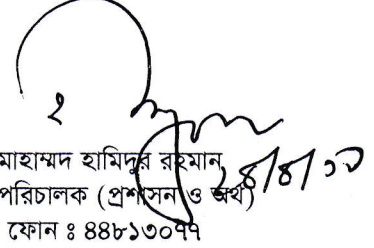 মোহাম্মদ হামিদুর রহমান
পরিচালক (প্রশাসন ও অর্থ)
ফোন ঃ ৪৪৮১৩০৭৭